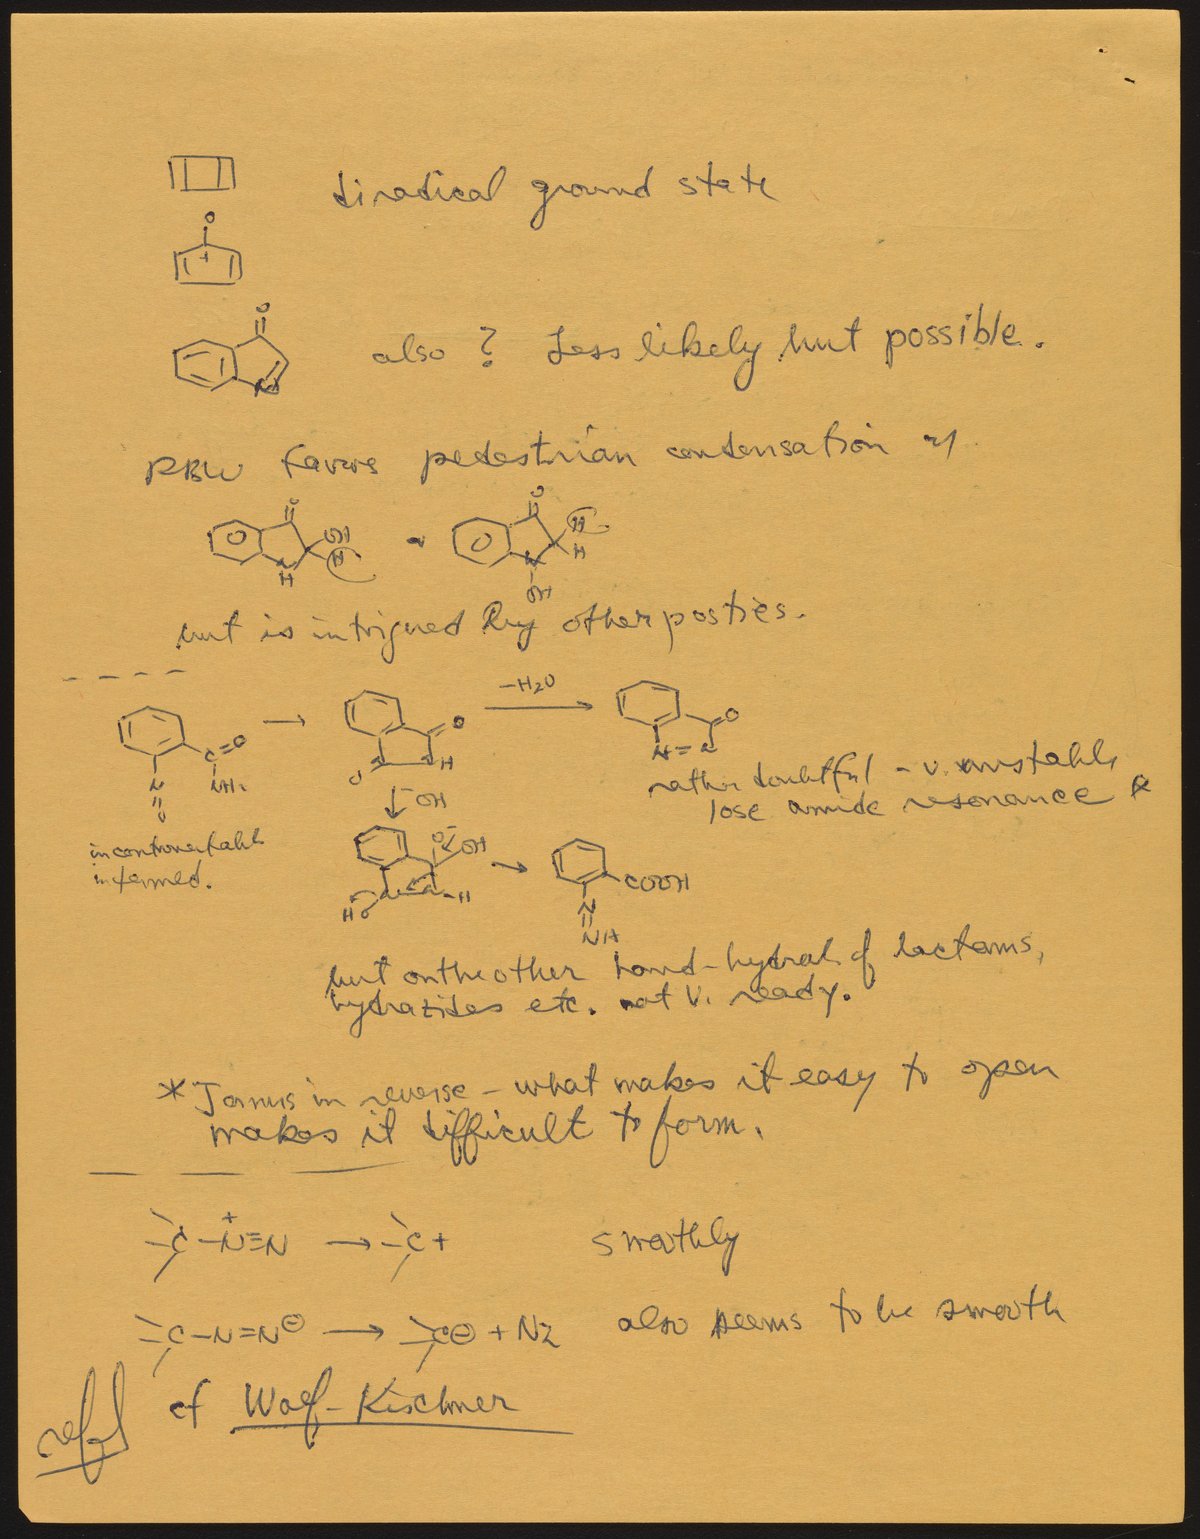 diradical ground state
O
+
O
also ? Less likely but possible.
N
RBW favors pedestrian condensation of
O
OH
H
N
H
O
H
H
N
OH
but is intrigued by other posties.
C=O
NH2
N
O
→
O
N
H
-H2O
O
N=N
rather doubtful - v. unstable
lose amide resonance *
-OH
incontrovertable
intermed.
O-
OH
HO
H
→
COOH
N
NH
but on the other hand - hydrol. of lactams,
hydrazides etc. not v. ready.
* Janus in reverse - what makes it easy to open
makes it difficult to form.
C-N≡N
+
→ C+
smoothly
C-N=N⊖ → C⊖ + N2
also seems to be smooth
cf Wolf-Kischner